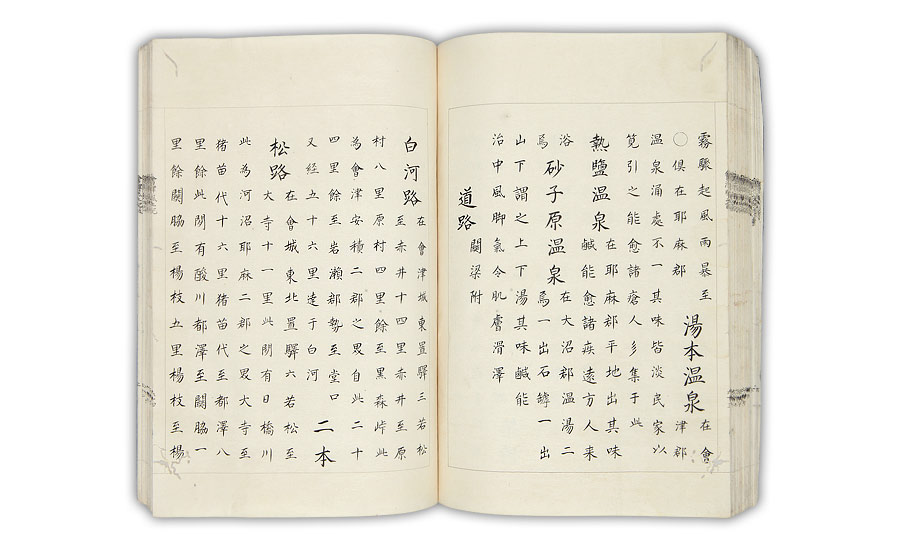 霧驟起風雨暴至
〇俱在耶麻郡
湯本温泉
在會
津郡
温泉涌處不一其味皆淡民家以
筧引之能愈諸瘡人多集于此
熱鹽温泉
在耶麻郡平地出其味
鹹能愈諸疾遠方人来
浴
焉
砂子原温泉
在大沼郡温湯二
焉一出石罅一出
山下謂之上下湯其味鹹能
治中風脚氣令肌膚滑澤
道路 關梁附
白河路
在會津城東置驛三若松
至赤井十四里赤井至原
村八里原村四里餘至黒森峠此
為會津安積二郡之界自此二十
四里餘至岩瀬郡勢至堂口
又経五十六里達于白河
二本
松路
在會城東北置驛六若松至
大寺十一里此閒有日橋川
此為河沼耶麻二郡之界大寺至
猪苗代十六里猪苗代至都澤八
里餘此閒有酸川都澤至關脇一
里餘關脇至楊枝五里楊枝至楊